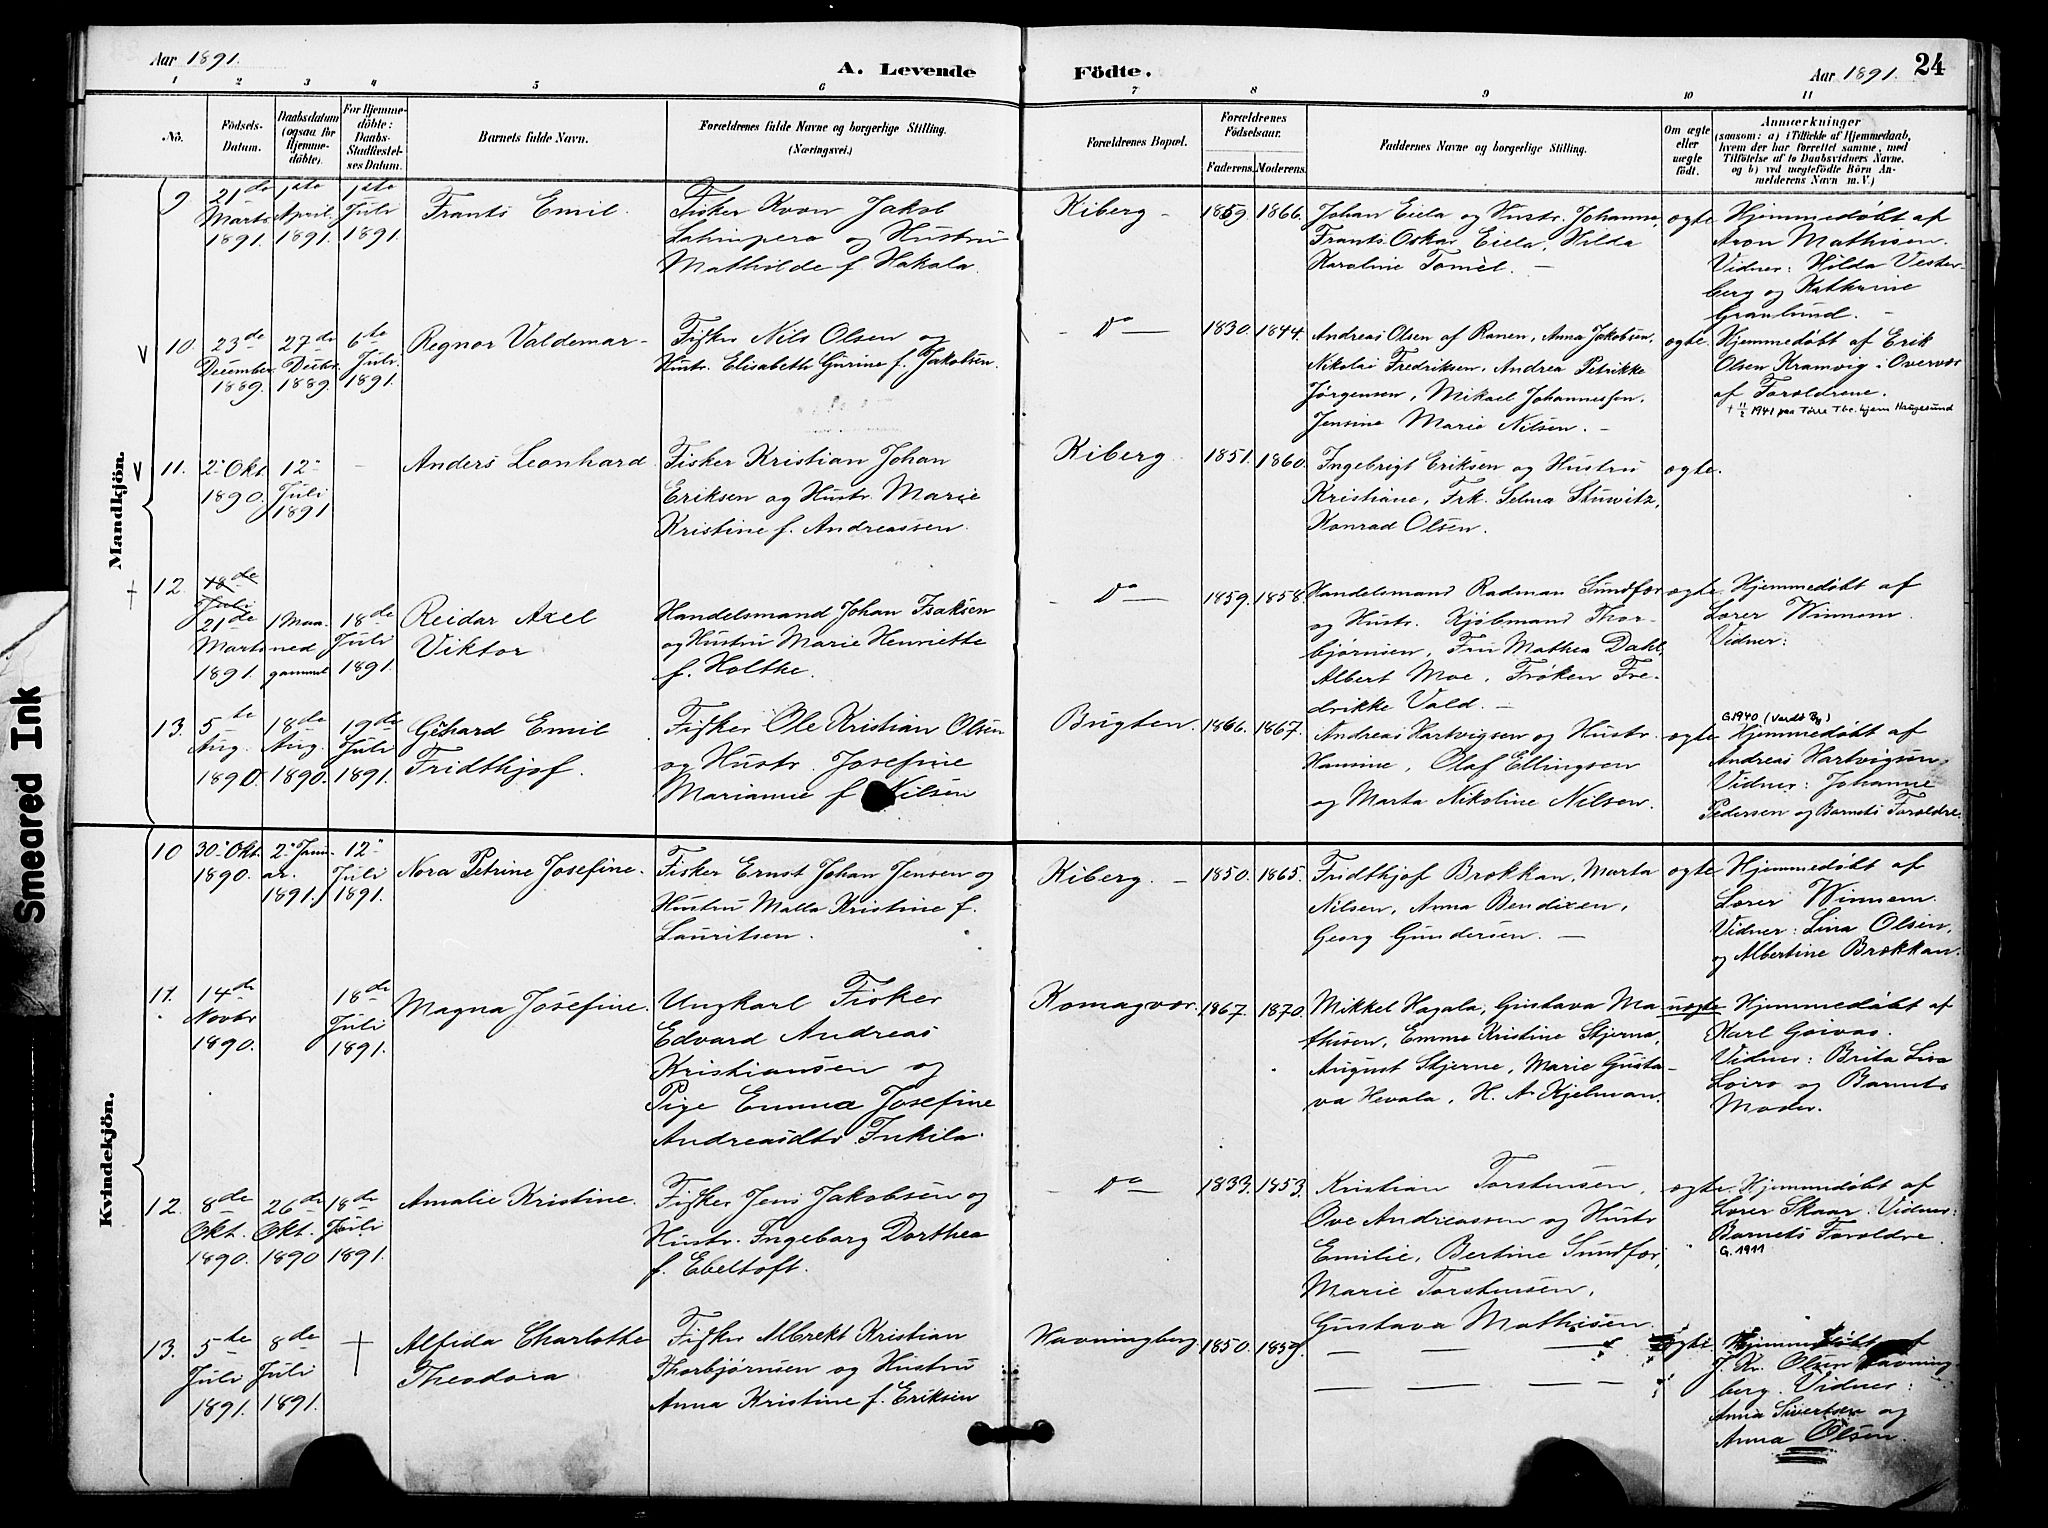 Aar 1891.
A. Levende
Födte.
Aar 1891.
24
1 2 3 4 5 6 7 8 9 10 11
Nö.
Födsels-
Datum.
Daabsdatum
(ogsaa for
Hjemme-
döbte).
For Hjemme-
döbte:
Daabs-
Stadfæstel-
ses Datum.
Barnets fulde Navn.
Forældrenes fulde Navne og borgerlige Stilling.
(Næringsvei.)
Forældrenes Bopæl.
Forældrenes
Födselsaar.
Faderens. Moderens.
Faddernes Navne og borgerlige Stilling.
Om ægte
eller
uægte
födt.
Anmærkninger
(saasom: a) i Tilfælde af Hjemmedaab,
hvem der har forrettet samme, med
Tilföielse af to Daabsvidners Navne.
og b) ved uægtefödte Börn An-
melderens Navn m. V.)
Mandkjön.
9
21de
Marts
1891.
1ste
April
1891.
1ste
Juli
1891.
Frants Emil.
Fisker Kvon Jakob
Lahinpera og Hustru
Mathilde f. Hakala.
Kiberg
1859.
1866.
Johan Eiela og Hustr. Johanna,
Frants Oskar Eiela, Hilda
Karoline Tomèl.
ægte
Hjemmedøbt af
Aron Mathisen.
Vidner: Hilda Vester-
berg og Kathrine
Granlund.
V
10.
23de
December
1889.
27de
Decbr.
1889.
6te
Juli
1891.
Regnor Valdemar
Fisker Nils Olsen og
Hustr. Elisabeth Gurine f. Jakobsen.
Do
1830.
1844.
Andreas Olsen af Ranen, Anna Jakobsen,
Nikolai Fredriksen, Andrea Petrikke
Jørgensen, Mikael Johannessen,
Jensine Marie Nilsen.
ægte
Hjemmedøbt af Erik
Olsen Kramvig i Overvær
af Forældrene.
† 11/2 1941 paa Tøre Tbc. hjem Haugesund
V
11.
2. Okt.
1890.
12.
Juli
1891
Anders Leonhard
Fisker Kristian Johan
Eriksen og Hustr. Marie
Kristine f. Andreassen.
Kiberg
1851.
1860.
Ingebrigt Eriksen og Hustru
Kristiane, Frk. Selma Stuwitz,
Konrad Olsen.
ægte.
†
12.
18de
Juli
21de
Marts
1891.
1 Maa-
ned
gammel
18de
Juli
1891.
Reidar Axel
Viktor
Handelsmand Johan Isaksen
og Hustru Marie Henriette
f. Holtke.
Do
1859.
1858.
Handelsmand Radman Sundfør
og Hustr. Kjøbmand Thor-
bjørnsen, Fru Mathea Dahl,
Albert Moe, Frøken Fre-
drikke Vald.
ægte.
Hjemmedøbt af
Lærer Winnem.
Vidner:
13.
5te
Aug.
1890.
18de
Aug.
1890.
19de
Juli
1891.
Gehard Emil
Fridthjof.
Fisker Ole Kristian Olsen
og Hustr. Josefine
Marianne f. Nilsen
Bugten.
1866.
1867.
Andreas Hartvigsen og Hustr.
Hansine, Olaf Ellingsen
og Marta Nikoline Nilsen.
ægte
G. 1940 (Vardö By)
Hjemmedøbt af
Andreas Hartvigsen
Vidner: Johanne
Pedersen og Barnets Forældre.
Kvindekjön.
10
30. Okt.
1890.
2. Janu-
ar.
1891.
12.
Juli
1891.
Nora Petrine Josefine.
Fisker Ernst Johan Jensen og
Hustru Malla Kristine f.
Lauritsen.
Kiberg.
1850.
1865.
Fridthjof Brokkan, Marta
Nilsen, Anna Bendixen,
Georg Gundersen.
ægte
Hjemmedøbt af
Lærer Winnem.
Vidner: Lina Olsen,
og Albertine Brokkan.
11.
14de
Novbr
1890.
18de
Juli
1891.
Magna Josefine.
Ungkarl Fisker
Edvard Andreas
Kristiansen og
Pige Emma Josefine
Andreasdtr. Inkila.
Komagvær.
1867.
1870.
Mikkel Hagala, Gustava Ma-
thisen, Emma Kristine Stjerna,
August Stjerne, Marie Gusta-
va Hevala, H. A. Kjelman.
uægte
Hjemmedøbt af
Karl Goivas.
Vidner: Brita Lisa
Loiro og Barnets
Moder.
12.
8de
Okt.
1890.
26de
Okt.
1890
18de
Juli
1891.
Amalie Kristine.
Fisker Jens Jakobsen og
Hustr. Ingeborg Dorthea
f. Ebeltoft.
Do
1833.
1853.
Kristian Torstensen,
Ove Andreassen og Hustr
Emilie, Bertine Sundfør,
Marie Torstensen,
Gustava Mathisen.
ægte.
Hjemmedøbt af
Lærer Skaar. Vidner:
Barnets Forældre.
G. 1911
13.
5te
Juli
1891.
8de
Juli
1891.
†
Alfida Charlotte
Theodora
Fisker Albrekt Kristian
Thorbjørnsen og Hustru
Anna Kristine f. Eriksen
Havningberg
1850.
1859.
ægte.
Hjemmedøbt af
J. Kr. Olsen Havning-
berg. Vidner:
Anna Sivertsen og
Anna Olsen.
Smeared Ink